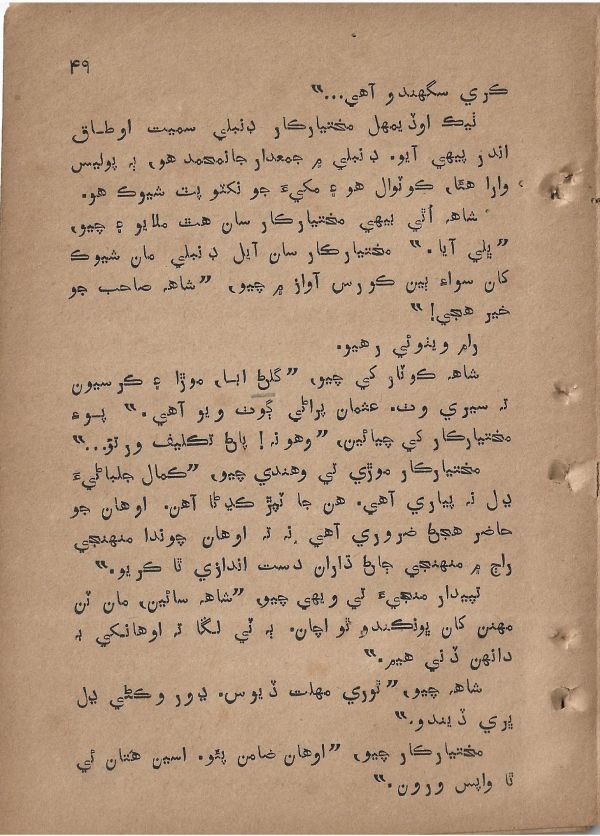 ۴۹
ڪري سگهندو آهي..."
ٺيڪ اوڏيمهل مختيارڪار ڊنبلي سميت اوطاق
اندر پيهي آيو. ڊنبلي ۾ جمعدار جانمحمد هو، ٻه پوليس
وارا هئا، ڪوٽوال هو ۽ مکيءَ جو ننڍو پٽ شيوڪ هو.
شاهه اُٿي بيهي مختيارڪار سان هٿ ملايو ۽ چيو،
"ڀلي آيا." مختيارڪار سان آيل ڊنبلي مان شيوڪ
کان سواءِ ٻين ڪورس آواز ۾ چيو، "شاهه صاحب جو
خير هجي!"
رام ويٺوئي رهيو.
شاهه ڪوٽار کي چيو، "گلڻ ابا، موڙا ۽ ڪرسيون
ته سيري وٺ. عثمان پراڻي ڳوٺ ويو آهي." پوءِ
مختيارڪار کي چيائين، "وهو نه! پاڻ تڪليف ورتؤ..."
مختيارڪار موڙي تي وهندي چيو، "ڪمال جلباڻيءَ
ڍل نه پياري آهي. هن جا ٽپڙ ڪڍڻا آهن. اوهان جو
حاضر هجڻ ضروري آهي نه ته اوهان چوندا منهنجي
راڄ ۾ منهنجي ڄاڻ ڌاران دست اندازي ٿا ڪريو."
تپيدار منجيءَ تي ويهي چيو، "شاهه سائين، مان ٽن
مهنن کان ڀونڪندو ٿو اچان. ٻه ٽي لڱا ته اوهانکي به
دانهن ڏني هيم."
شاهه چيو، "ٿوري مهلت ڏيوس. ڍور وڪڻي ڍل
ڀري ڏيندو."
مختيارڪار چيو، "اوهان ضامن پئو. اسين هتان ئي
ٿا واپس ورون."